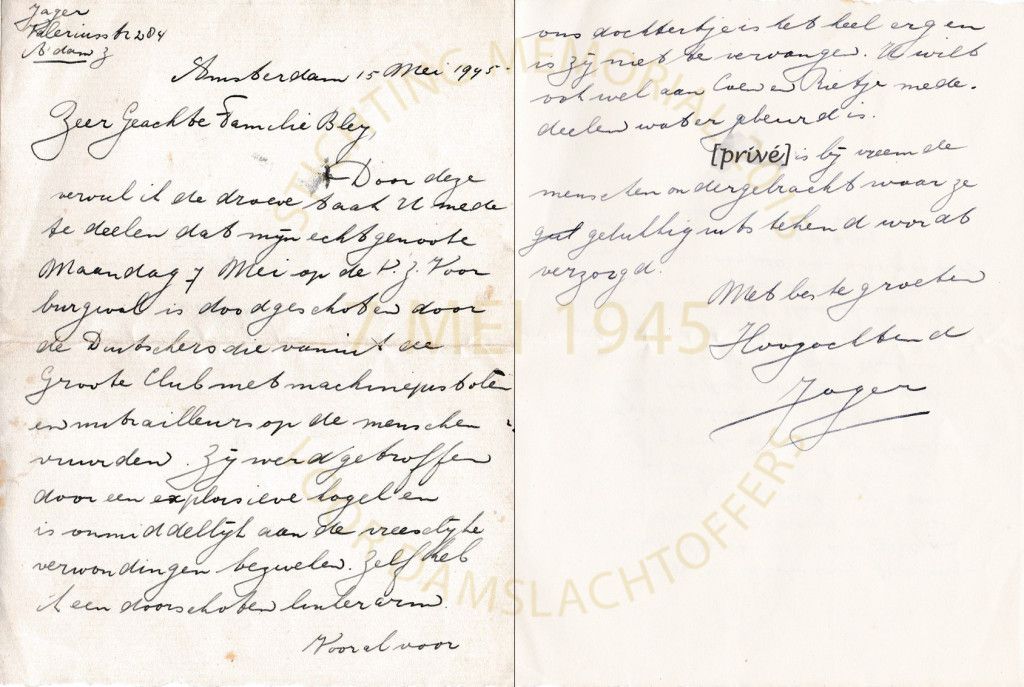 Jager
Valeriusstr 284
A'dam Z
Amsterdam 15 Mei 1945.
Zeer Geachte Familie Bley,
Door deze
vervul ik de droeve taak U mede
te deelen dat mijn echtgenoote
Maandag 7 Mei op de N.Z. Voor
burgwal is doodgeschoten door
de Duitschers die vanuit de
Groote Club met machinepistolen
en mitrailleurs op de menschen
vuurden. Zij werd getroffen
door een explosieve kogel en
is onmiddellijk aan de vreeselijke
verwondingen bezweken. Zelf heb
ik een doorschoten linkerarm.
Vooral voor
ons dochtertje is het heel erg en
is zij niet te vervangen. U wilt
ook wel aan Coen en Rietje mede-
deelen wat er gebeurd is.
[privé] is bij vreemde
menschen ondergebracht waar ze
gelukkig uitstekend wordt
verzorgd.
Met beste groeten
Hoogachtend
Jager
STICHTING MEMORIAL VOOR
7 MEI 1945
VOOR DAMSLACHTOFFERS